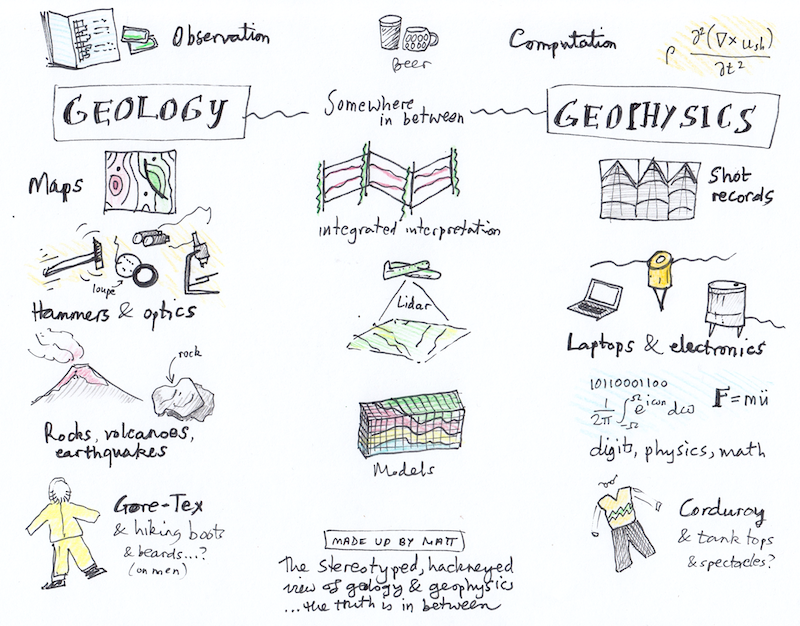 Observation
Beer
Computation
ρ ∂²(∇×u_sh) / ∂t²
GEOLOGY
Somewhere
in between
GEOPHYSICS
Maps
integrated interpretation
Shot
records
loupe
Hammers & optics
Lidar
Laptops & electronics
rock
Rocks, volcanoes,
earthquakes
Models
10110001100
1/2π ∫_{-Ω}^{Ω} e^{iωn} dω
F = mü
digits, physics, math
Gore-Tex
& hiking boots
& beards...?
(on men)
MADE UP BY MATT
The stereotyped, hackneyed
view of geology & geophysics
...the truth is in between
Corduroy
& tank tops
& spectacles?